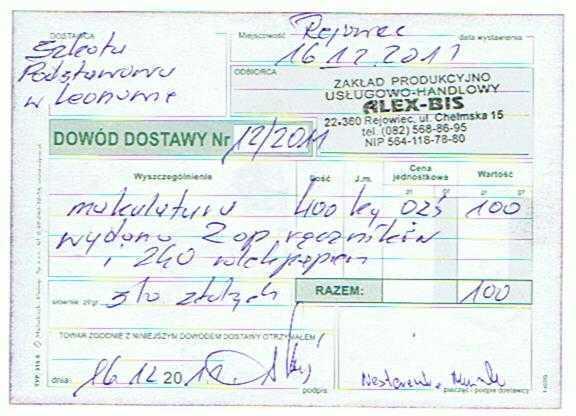 DOSTAWCA
Szkoła
Podstawowa
w Leonowie
Miejscowość Rejowiec data wystawienia
16.12.2011
ODBIORCA
ZAKŁAD PRODUKCYJNO
USŁUGOWO-HANDLOWY
ALEX-BIS
22-360 Rejowiec, ul. Chełmska 15
tel. (082) 568-86-95
NIP 564-118-78-80
DOWÓD DOSTAWY Nr 12/2011
Wyszczególnienie Ilość J.m. Cena jednostkowa Wartość
zł gr zł gr
makulatura 400 kg 025 100
wydano 2 op. ręczników
i 240 rolek papieru
RAZEM: 100
słownie: zł gr sto złotych
TOWAR ZGODNIE Z NINIEJSZYM DOWODEM DOSTAWY OTRZYMAŁEM
dnia: 16.12 2011
podpis
pieczęć - podpis dostawcy